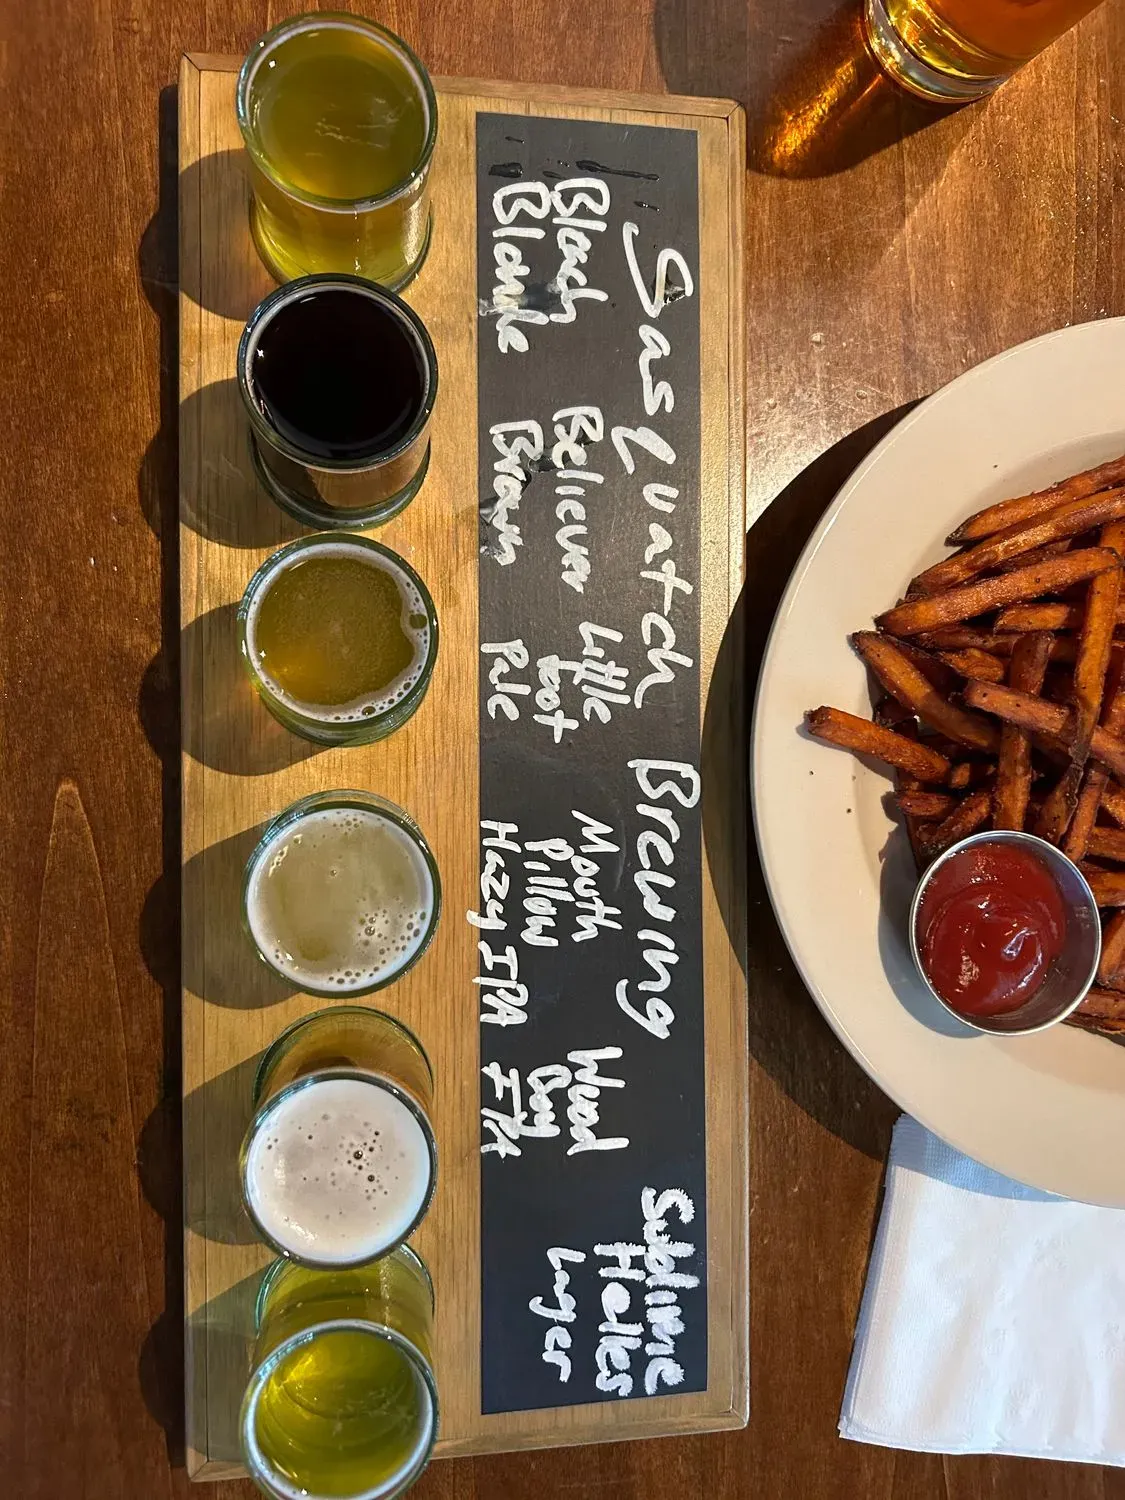 Sasquatch Brewing
Bleach
Blonde
Believer
Brown
Little
Foot
Pale
Mouth
Pillow
Hazy IPA
Wood
Boy
IPA
Sublime
Helles
Lager